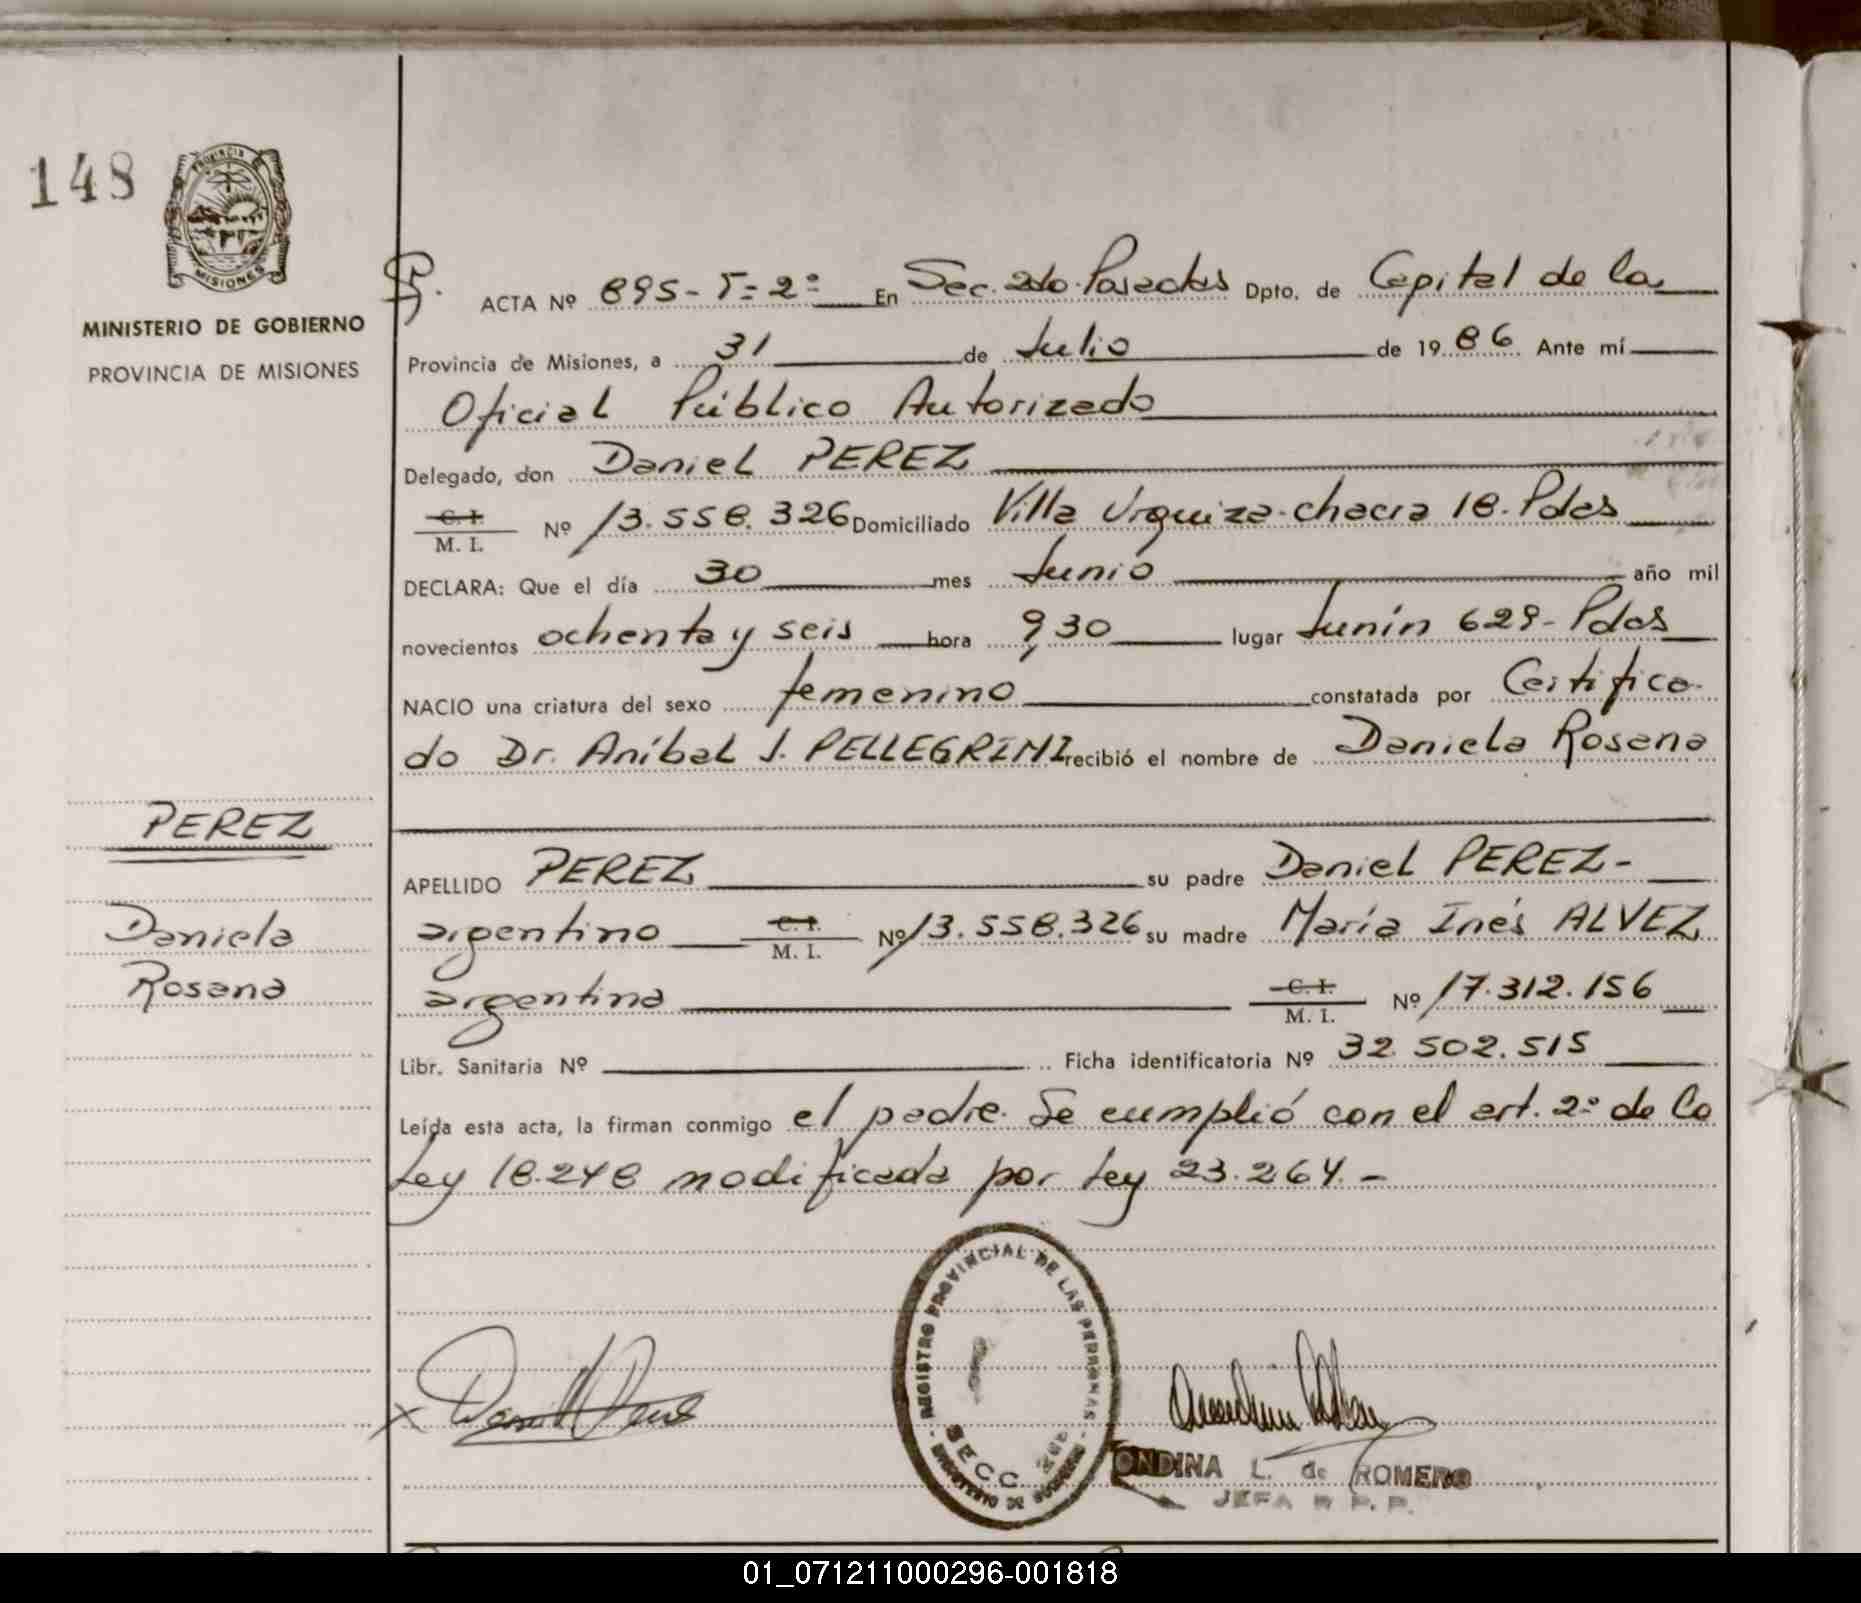 148
PROVINCIA DE
MISIONES
MINISTERIO DE GOBIERNO
PROVINCIA DE MISIONES
ACTA Nº 895-T=2º En Sec. 2do. Posadas Dpto. de Capital de la
Provincia de Misiones, a 31 de Julio de 1986 Ante mí
Oficial Público Autorizado
Delegado, don Daniel PEREZ
C. I.
M. I.
Nº 13.558.326 Domiciliado Villa Urquiza-chacra 18. Pdas
DECLARA: Que el día 30 mes Junio año mil
novecientos ochenta y seis hora 9,30 lugar Junín 629- Pdas
NACIO una criatura del sexo femenino constatada por Certifica-
do Dr. Aníbal J. PELLEGRINI recibió el nombre de Daniela Rosana
PEREZ
Daniela
Rosana
APELLIDO PEREZ su padre Daniel PEREZ-
argentino C. I. M. I. Nº 13.558.326 su madre María Inés ALVEZ
argentina C. I. M. I. Nº 17.312.156
Libr. Sanitaria Nº Ficha identificatoria Nº 32.502.515
Leída esta acta, la firman conmigo el padre. Se cumplió con el art. 2º de la
Ley 18.248 modificada por Ley 23.264.-
REGISTRO PROVINCIAL DE LAS PERSONAS
SECC.
MINISTERIO DE GOBIERNO
ONDINA L. de ROMERO
JEFA R. P. P.
01_071211000296-001818